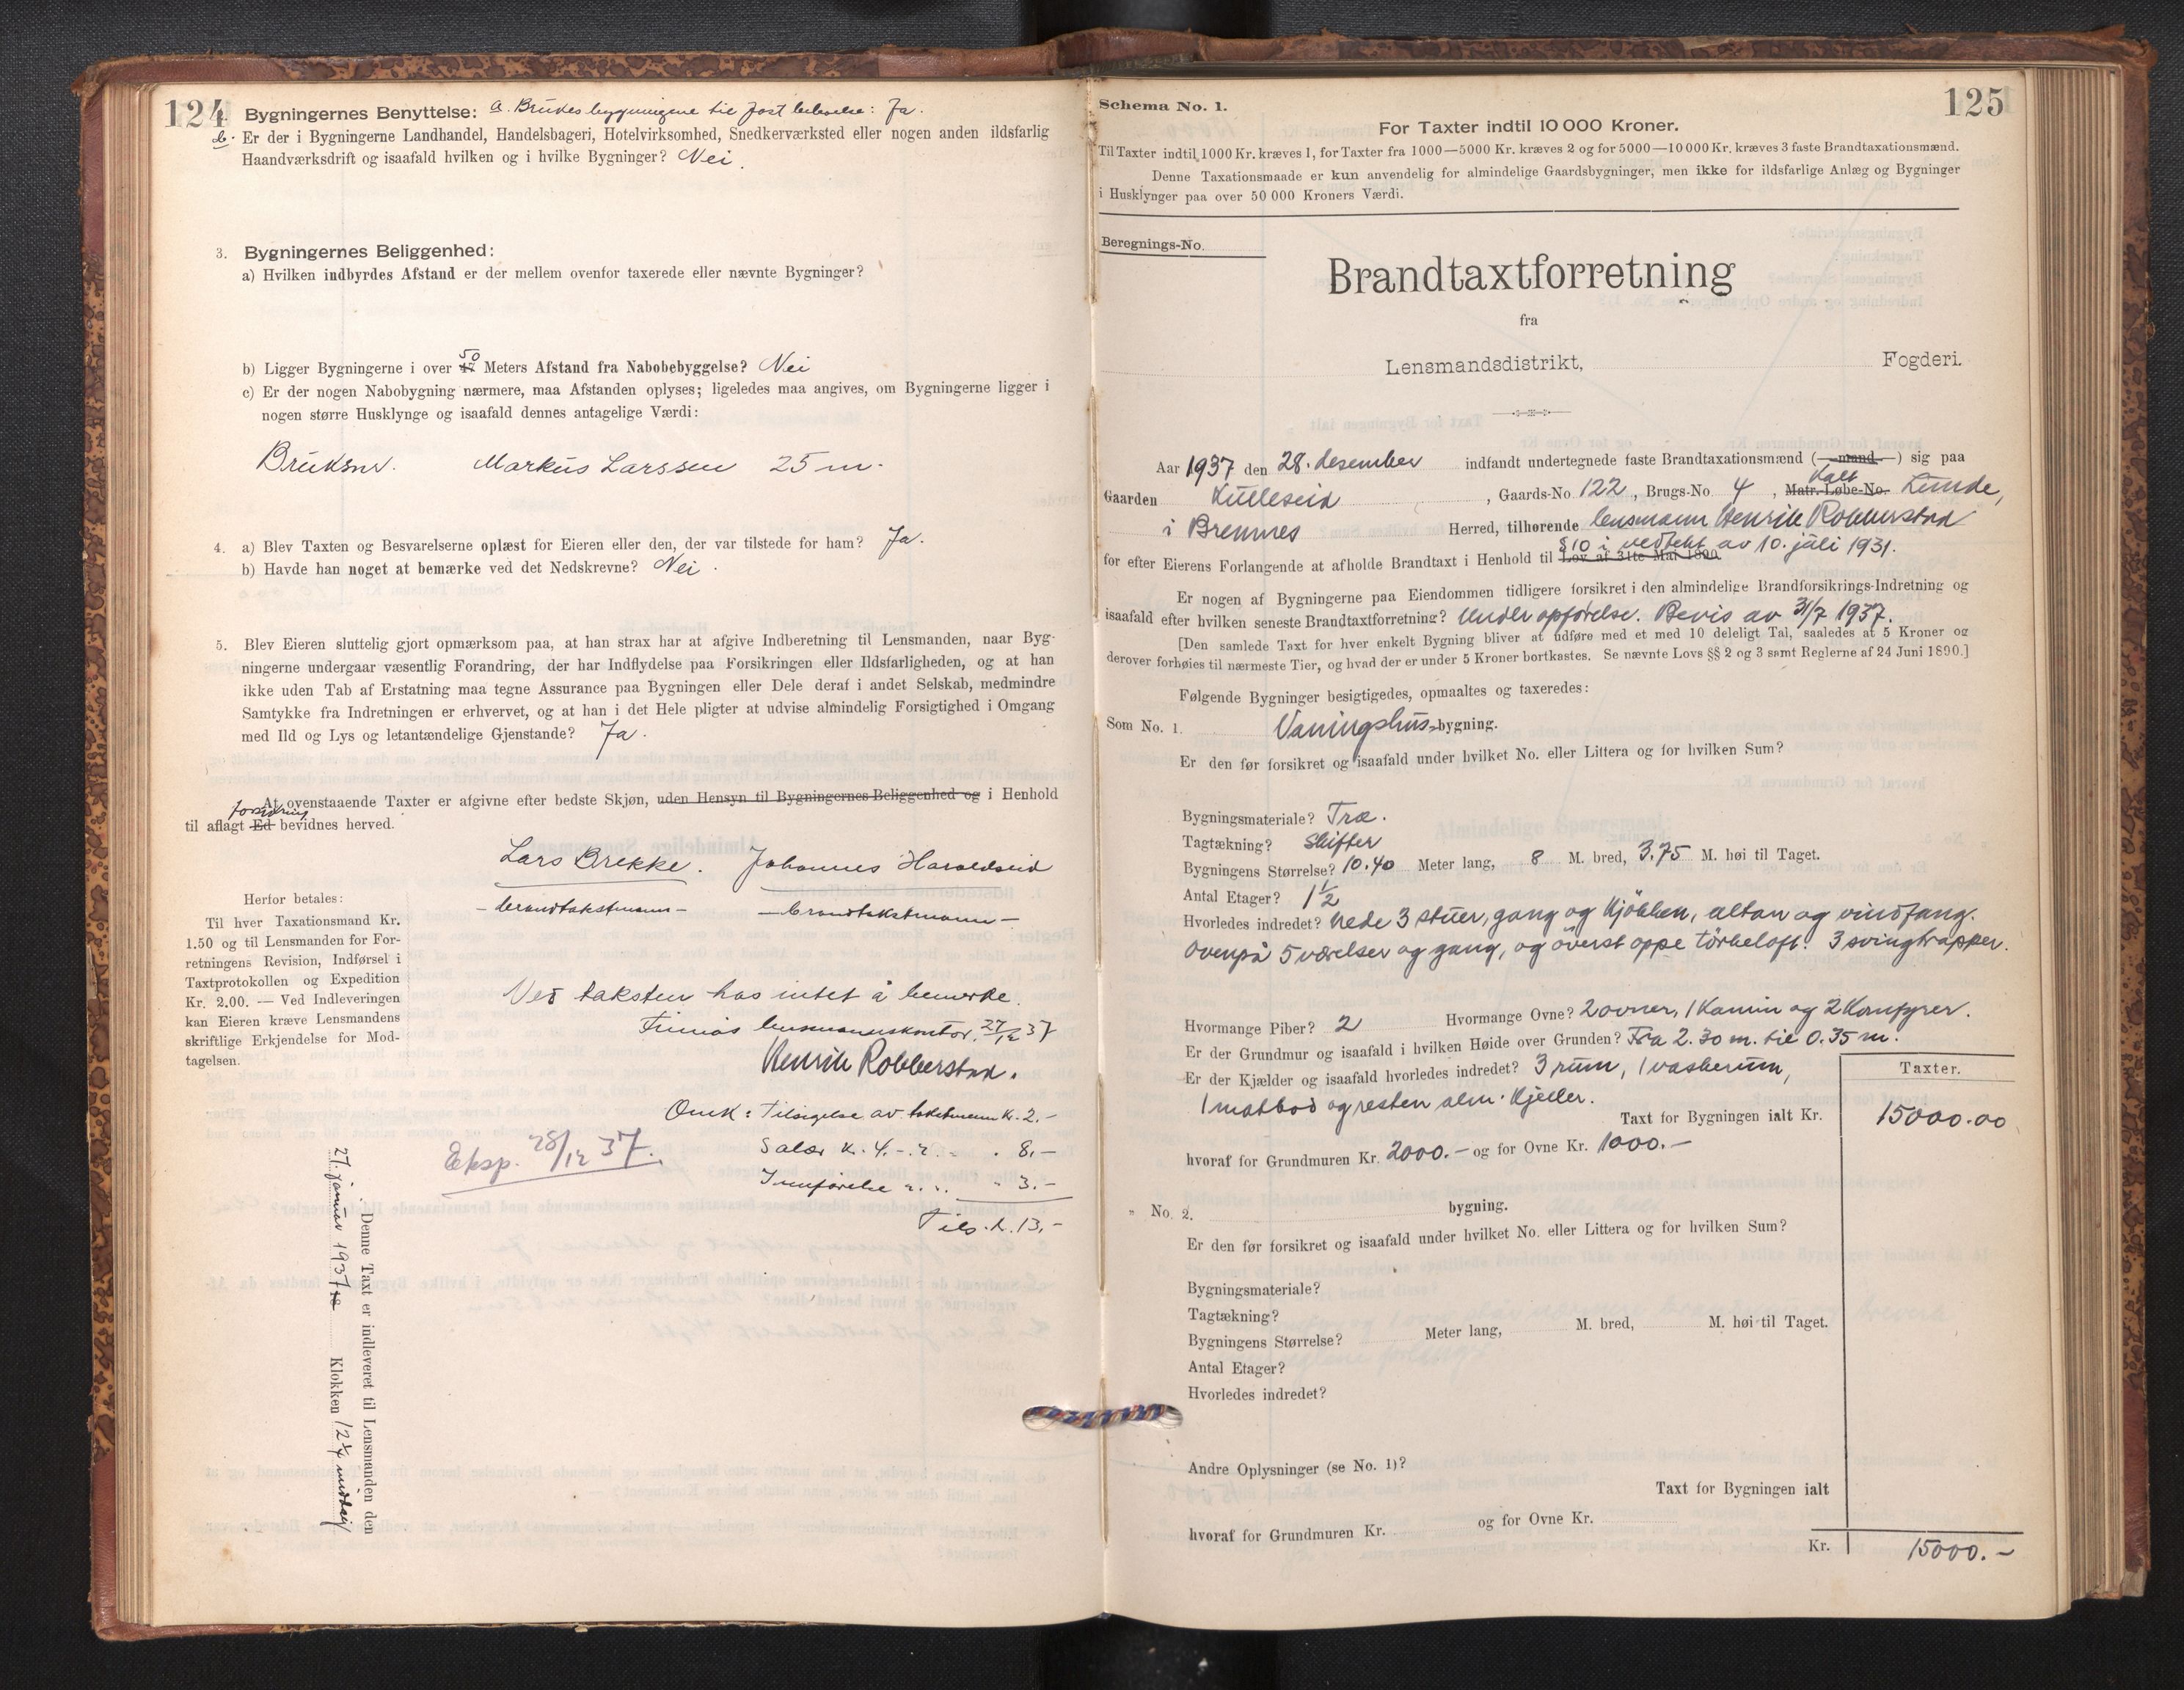 124
Bygningernes Benyttelse: a. Brukes bygningene til fast beboelse: Ja.
b. Er der i Bygningerne Landhandel, Handelsbageri, Hotelvirksomhed, Snedkerværksted eller nogen anden ildsfarlig
Haandværksdrift og isaafald hvilken og i hvilke Bygninger? Nei.
3. Bygningernes Beliggenhed:
a) Hvilken indbyrdes Afstand er der mellem ovenfor taxerede eller nævnte Bygninger?
b) Ligger Bygningerne i over 50 Meters Afstand fra Nabobebyggelse? Nei
c) Er der nogen Nabobygning nærmere, maa Afstanden oplyses; ligeledes maa angives, om Bygningerne ligger i
nogen større Husklynge og isaafald dennes antagelige Værdi:
Bruksnr. Markus Larssen 25 m.
4. a) Blev Taxten og Besvarelserne oplæst for Eieren eller den, der var tilstede for ham? Ja.
b) Havde han noget at bemærke ved det Nedskrevne? Nei.
5. Blev Eieren sluttelig gjort opmærksom paa, at han strax har at afgive Indberetning til Lensmanden, naar Byg-
ningerne undergaar væsentlig Forandring, der har Indflydelse paa Forsikringen eller Ildsfarligheden, og at han
ikke uden Tab af Erstatning maa tegne Assurance paa Bygningen eller Dele deraf i andet Selskab, medmindre
Samtykke fra Indretningen er erhvervet, og at han i det Hele pligter at udvise almindelig Forsigtighed i Omgang
med Ild og Lys og letantændelige Gjenstande? Ja.
At ovenstaaende Taxter er afgivne efter bedste Skjøn, uden Hensyn til Bygningernes Beliggenhed og i Henhold
forsikring
til aflagt Ed bevidnes herved.
Lars Brekke. Johannes Haraldseid
- brandtakstmann - - brandtakstmann -
Herfor betales:
Til hver Taxationsmand Kr.
1.50 og til Lensmanden for For-
retningens Revision, Indførsel i
Taxtprotokollen og Expedition
Kr. 2.00. — Ved Indleveringen
kan Eieren kræve Lensmandens
skriftlige Erkjendelse for Mod-
tagelsen.
Ved taksten has intet å bemerke.
Finnås lensmannskontor, 27/12 37
Henrik Robberstad.
Omk: Tilsigelse av takstmenn Kr. 2.-
Salær kr. 4.- 8,-
Innførelse 3.-
Tils. k. 13,-
Eksp. 28/12 37.
Denne Taxt er indleveret til Lensmanden den
27. januar 1937 Klokken 12 1/4 middag
Schema No. 1.
125
For Taxter indtil 10 000 Kroner.
Til Taxter indtil 1000 Kr. kræves 1, for Taxter fra 1000—5000 Kr. kræves 2 og for 5000—10 000 Kr. kræves 3 faste Brandtaxationsmænd.
Denne Taxationsmaade er kun anvendelig for almindelige Gaardsbygninger, men ikke for ildsfarlige Anlæg og Bygninger
i Husklynger paa over 50 000 Kroners Værdi.
Beregnings-No.
Brandtaxtforretning
fra
Lensmandsdistrikt, Fogderi.
Aar 1937 den 28. desember indfandt undertegnede faste Brandtaxationsmænd (—mand—) sig paa
Gaarden Kulleseid, Gaards-No. 122, Brugs-No. 4, Matr.-Løbe-No. kalt Lunde,
i Bremnes Herred, tilhørende lensmann Henrik Robberstad
§ 10 i vedtekt av 10. juli 1931.
for efter Eierens Forlangende at afholde Brandtaxt i Henhold til Lov af 31te Mai 1890
Er nogen af Bygningerne paa Eiendommen tidligere forsikret i den almindelige Brandforsikrings-Indretning og
isaafald efter hvilken seneste Brandtaxtforretning? Under opförelse. Bevis av 31/7 1937.
[Den samlede Taxt for hver enkelt Bygning bliver at udføre med et med 10 deleligt Tal, saaledes at 5 Kroner og
derover forhøies til nærmeste Tier, og hvad der er under 5 Kroner bortkastes. Se nævnte Lovs §§ 2 og 3 samt Reglerne af 24 Juni 1890.]
Følgende Bygninger besigtigedes, opmaaltes og taxeredes:
Som No. 1. Vaningshus-bygning.
Er den før forsikret og isaafald under hvilket No. eller Littera og for hvilken Sum?
Bygningsmateriale? Træ.
Tagtækning? Skifter
Bygningens Størrelse? 10.40 Meter lang, 8 M. bred, 3.75 M. høi til Taget.
Antal Etager? 1 1/2
Hvorledes indredet? Nede 3 stuer, gang og kjökken, altan og vindfang.
Ovenpå 5 værelser og gang, og överst oppe törkeloft. 3 svingtrapper.
Hvormange Piber? 2 Hvormange Ovne? 2 ovner, 1 Kamin og 2 Komfyrer.
Er der Grundmur og isaafald i hvilken Høide over Grunden? Fra 2.30 m. til 0.35 m.
Er der Kjælder og isaafald hvorledes indredet? 3 rum, 1 vaskerum,
1 matbod og resten alm. kjeller.
Taxter.
Taxt for Bygningen ialt Kr. 15000.00
hvoraf for Grundmuren Kr. 2000.- og for Ovne Kr. 1000.-
" No. 2. bygning.
Er den før forsikret og isaafald under hvilket No. eller Littera og for hvilken Sum?
Bygningsmateriale?
Tagtækning?
Bygningens Størrelse? Meter lang, M. bred, M. høi til Taget.
Antal Etager?
Hvorledes indredet?
Andre Oplysninger (se No. 1)?
Taxt for Bygningen ialt
hvoraf for Grundmuren Kr. og for Ovne Kr.
Kr. 15000.-